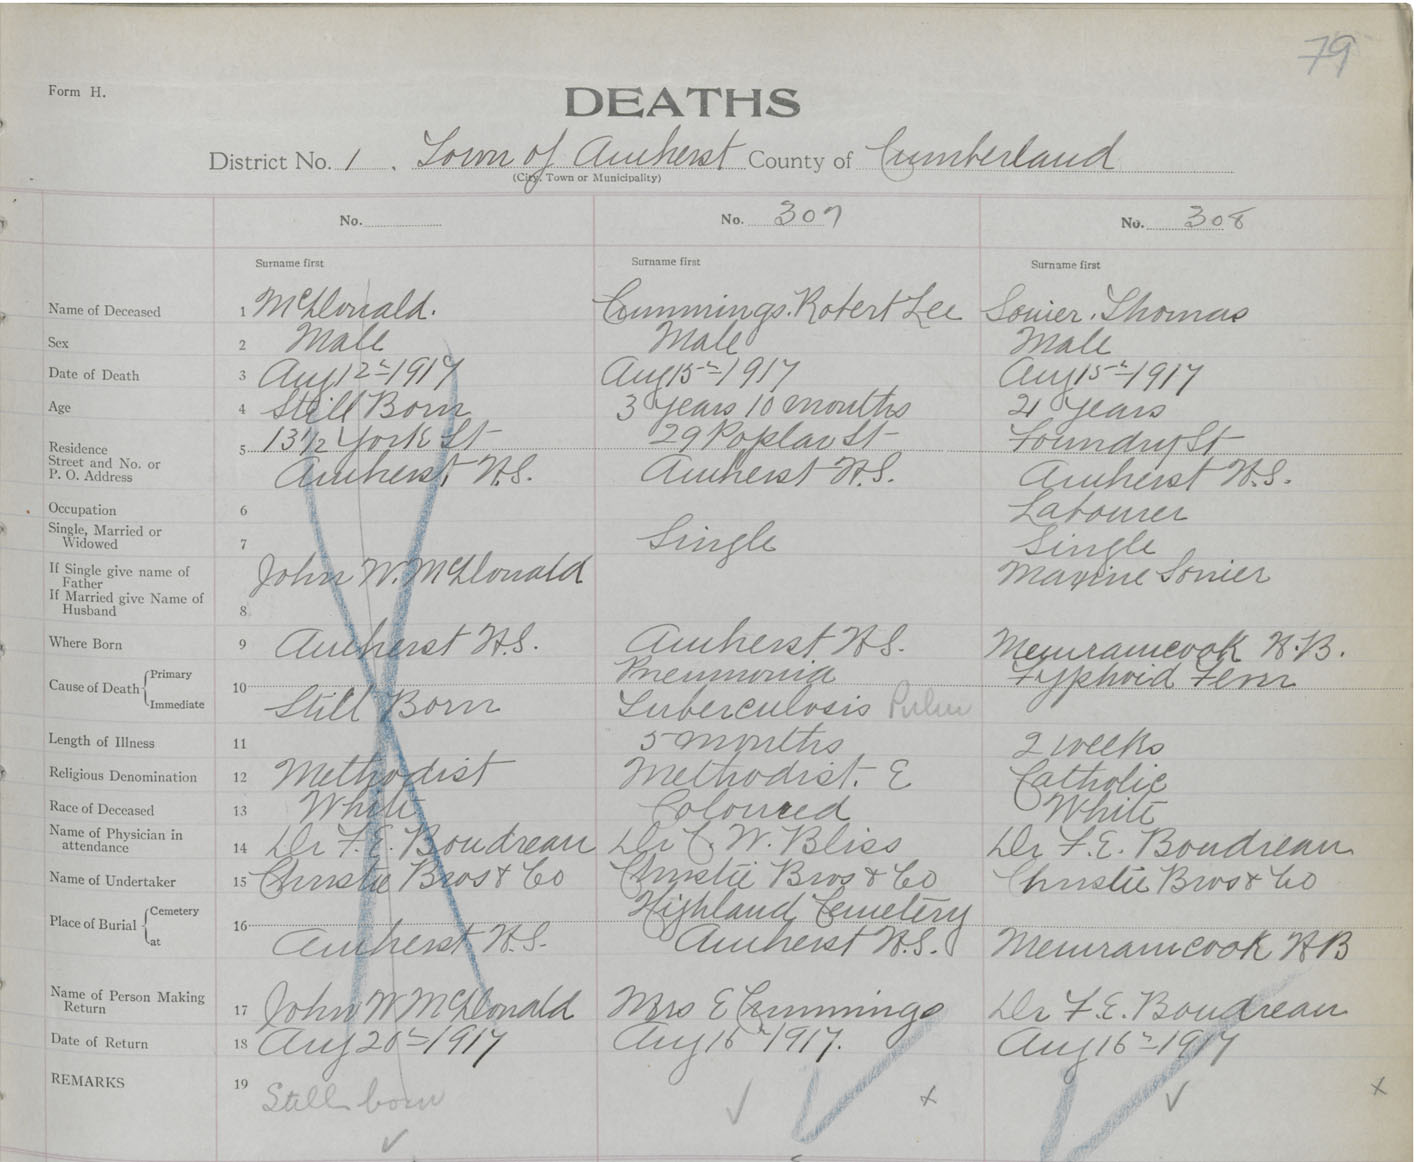 79
Form H.
DEATHS
District No. 1. Town of Amherst County of Cumberland
(City, Town or Municipality)
No. No. 307 No. 308
Surname first Surname first Surname first
Name of Deceased 1 McDonald. Cummings. Robert Lee Sonier. Thomas
Sex 2 Male Male Male
Date of Death 3 Aug 12th 1917 Aug 15th 1917 Aug 15th 1917
Age 4 Still Born 3 Years 10 months 21 Years
Residence 5 13½ York St 29 Poplar St Foundry St
Street and No. or
P. O. Address Amherst, N.S. Amherst N.S. Amherst N.S.
Occupation 6 Labourer
Single, Married or
Widowed 7 Single Single
If Single give name of
Father John W. McDonald Maxine Sonier
If Married give Name of
Husband 8
Where Born 9 Amherst N.S. Amherst N.S. Memramcook N.B.
Cause of Death Primary 10 Pneumonia Typhoid Fever
Immediate Still Born Tuberculosis Pulm
Length of Illness 11 5 months 2 weeks
Religious Denomination 12 Methodist Methodist. E Catholic
Race of Deceased 13 White Coloured White
Name of Physician in
attendance 14 Dr F.E. Boudreau Dr C. W. Bliss Dr F.E. Boudreau
Name of Undertaker 15 Christie Bros & Co Christie Bros & Co Christie Bros & Co
Place of Burial Cemetery 16 Highland Cemetery
at Amherst N.S. Amherst N.S. Memramcook N B
Name of Person Making
Return 17 John W McDonald Mrs E Cummings Dr F.E. Boudreau
Date of Return 18 Aug 20th 1917 Aug 16th 1917. Aug 16th 1917
REMARKS 19 Still born